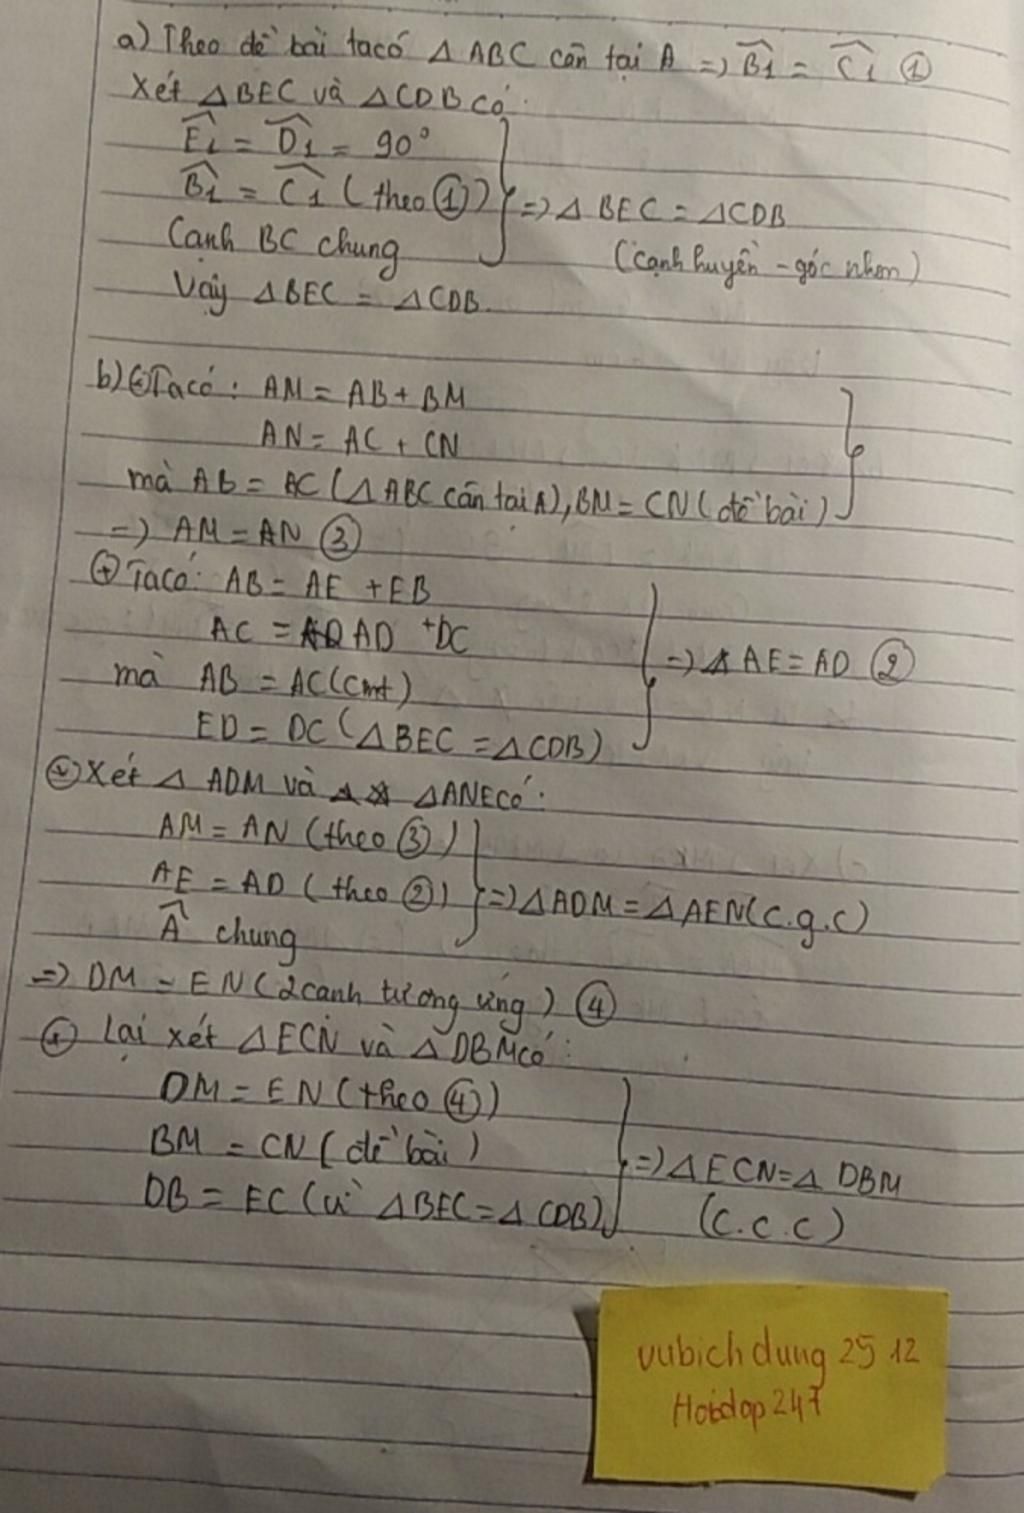 a) Theo đề bài ta có △ ABC cân tại A => B̂1 = Ĉ1 ①
Xét △BEC và △CDB có:
Ê1 = D̂1 = 90°
B̂1 = Ĉ1 (theo ①)
Cạnh BC chung
=> △ BEC = △CDB
(cạnh huyền - góc nhọn)
Vậy △BEC = △CDB.
b) Ta có: AM = AB + BM
AN = AC + CN
mà AB = AC (△ABC cân tại A), BM = CN (đề bài)
=> AM = AN ③
⊕ Ta có: AB = AE + EB
AC = AD + DC
mà AB = AC (cmt)
ED = DC (△BEC = △CDB)
=> AE = AD ②
Xét △ ADM và △ANE có:
AM = AN (theo ③)
AE = AD (theo ②)
Â chung
=> △ADM = △AEN (c.g.c)
=> DM = EN (2 cạnh tương ứng) ④
⊕ Lại xét △ECN và △DBM có:
DM = EN (theo ④)
BM = CN (đề bài)
DB = EC (vì △BEC = △CDB)
=> △ECN = △ DBM
(c.c.c)
vubichdung 25 12
Hoidap247